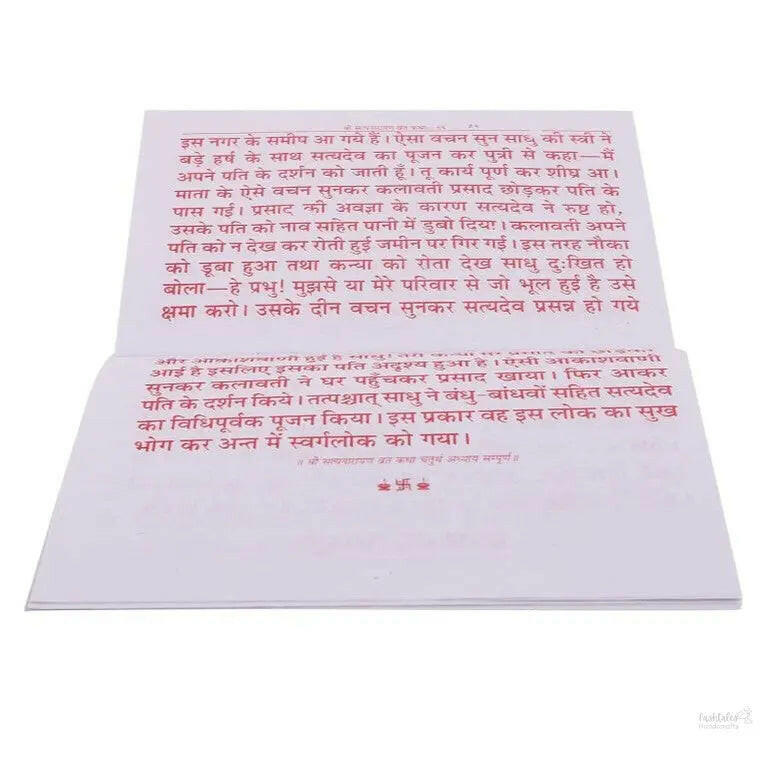 श्री सत्यनारायण व्रत कथा
इस नगर के समीप आ गये हैं। ऐसा वचन सुन साधु की स्त्री ने
बड़े हर्ष के साथ सत्यदेव का पूजन कर पुत्री से कहा—मैं
अपने पति के दर्शन को जाती हूँ। तू कार्य पूर्ण कर शीघ्र आ।
माता के ऐसे वचन सुनकर कलावती प्रसाद छोड़कर पति के
पास गई। प्रसाद की अवज्ञा के कारण सत्यदेव ने रुष्ट हो,
उसके पति को नाव सहित पानी में डुबो दिया। कलावती अपने
पति को न देख कर रोती हुई जमीन पर गिर गई। इस तरह नौका
को डूबा हुआ तथा कन्या को रोता देख साधु दुःखित हो
बोला—हे प्रभु! मुझसे या मेरे परिवार से जो भूल हुई है उसे
क्षमा करो। उसके दीन वचन सुनकर सत्यदेव प्रसन्न हो गये
और आकाशवाणी हुई है साधु!
आई है इसलिए इसका पति अदृश्य हुआ है। ऐसी आकाशवाणी
सुनकर कलावती ने घर पहुँचकर प्रसाद खाया। फिर आकर
पति के दर्शन किये। तत्पश्चात् साधु ने बंधु-बांधवों सहित सत्यदेव
का विधिपूर्वक पूजन किया। इस प्रकार वह इस लोक का सुख
भोग कर अन्त में स्वर्गलोक को गया।
॥ श्री सत्यनारायण व्रत कथा चतुर्थ अध्याय सम्पूर्ण॥